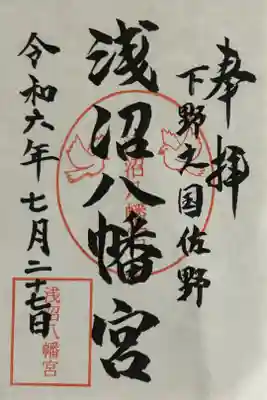 奉拝
下野之国佐野
浅沼八幡宮
令和六年七月二十七日
浅沼八幡
浅沼八幡宮